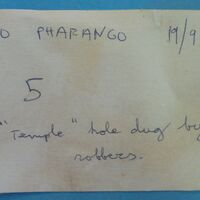 O PHARANGO 19/9
5
"Temple" hole dug by
robbers.